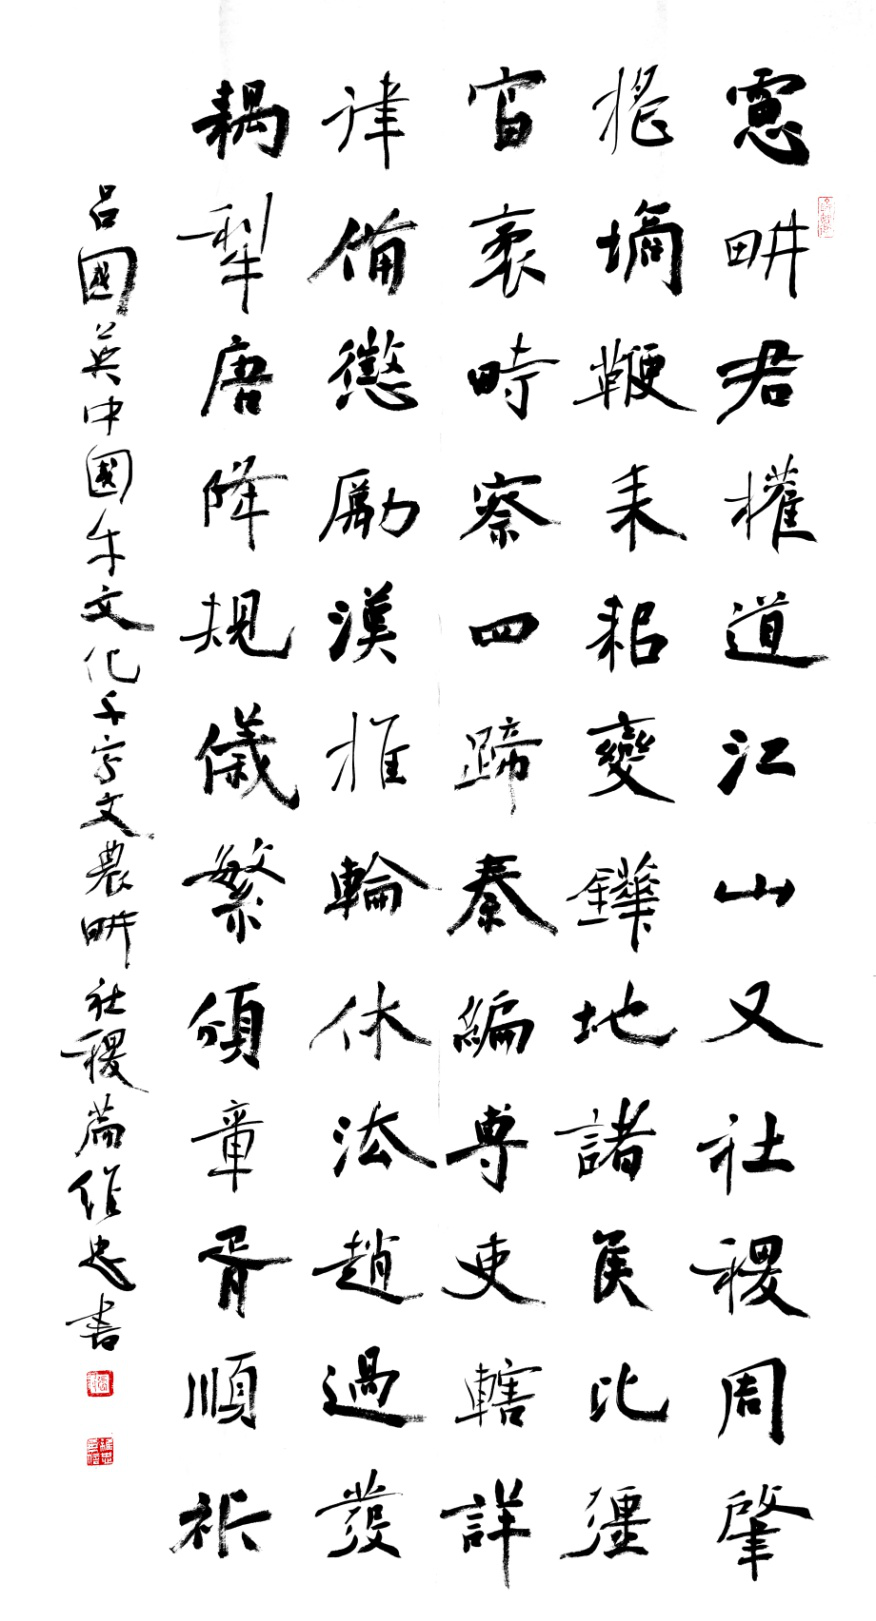 憲畊君權道江山又社稷周肇
搖墒鞭耒耜變鏵地諸侯比彊
畜衷時察四蹄秦編專吏轄詳
律備懲勵漢推輪休法趙過發
耦犁唐降規儀繁頌章胥順祈
呂國英中國牛文化千字文農畊社稷篇維忠書